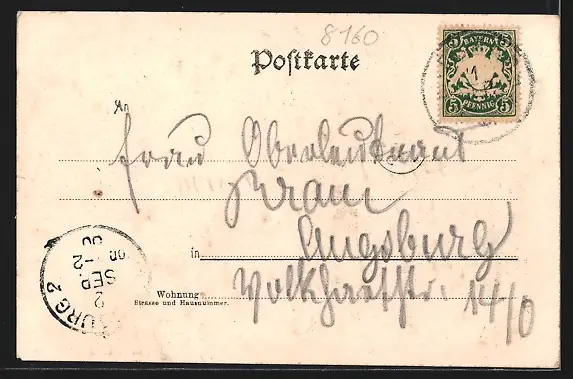 8160
Postkarte
BAYERN
5 5
1
5 5
PFENNIG
An
Frau Oberleutnant
Braun
in Augsburg
Wohnung
Strasse und Hausnummer.
Volkhartstr. 14/0
BURG 2
2
SEP